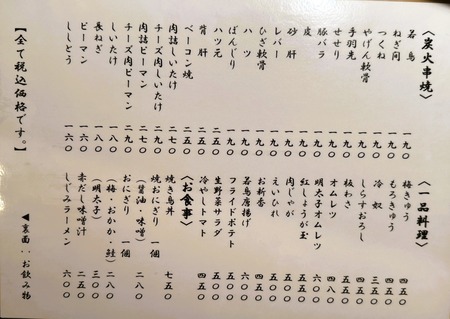 〈炭火串焼〉
若鳥 一九〇
ねぎ間 一九〇
つくね 一九〇
やげん軟骨 一九〇
手羽先 一九〇
せせり 一九〇
豚バラ 一九〇
皮 一九〇
砂肝 一九〇
レバー 一九〇
ひざ軟骨 一九〇
ハツ 一九〇
ぼんじり 一九〇
ハツ元 二五〇
背肝 二五〇
ベーコン焼 二五〇
肉詰しいたけ 二五〇
チーズ肉しいたけ 二九〇
肉詰ピーマン 二五〇
チーズ肉ピーマン 二九〇
しいたけ 一八〇
長ねぎ 一八〇
ピーマン 一六〇
ししとう 一六〇
【全て税込価格です。】
〈一品料理〉
梅きゅう 四五〇
もろきゅう 四五〇
冷奴 三五〇
しらすおろし 四五〇
板わさ 四五〇
オムレツ
明太子オムレツ
紅しょうが玉
肉じゃが
えいひれ
お新香
若鳥唐揚げ 六五〇
フライドポテト 四五〇
生野菜サラダ 五五〇
冷やしトマト 四五〇
〈お食事〉
焼き鳥丼 七五〇
焼おにぎり 一個
(醤油・味噌) 二八〇
おにぎり 一個
(梅・おかか・鮭) 二八〇
(明太子) 三〇〇
赤だし味噌汁 二五〇
しじみラーメン 六〇〇
▲裏面：お飲み物